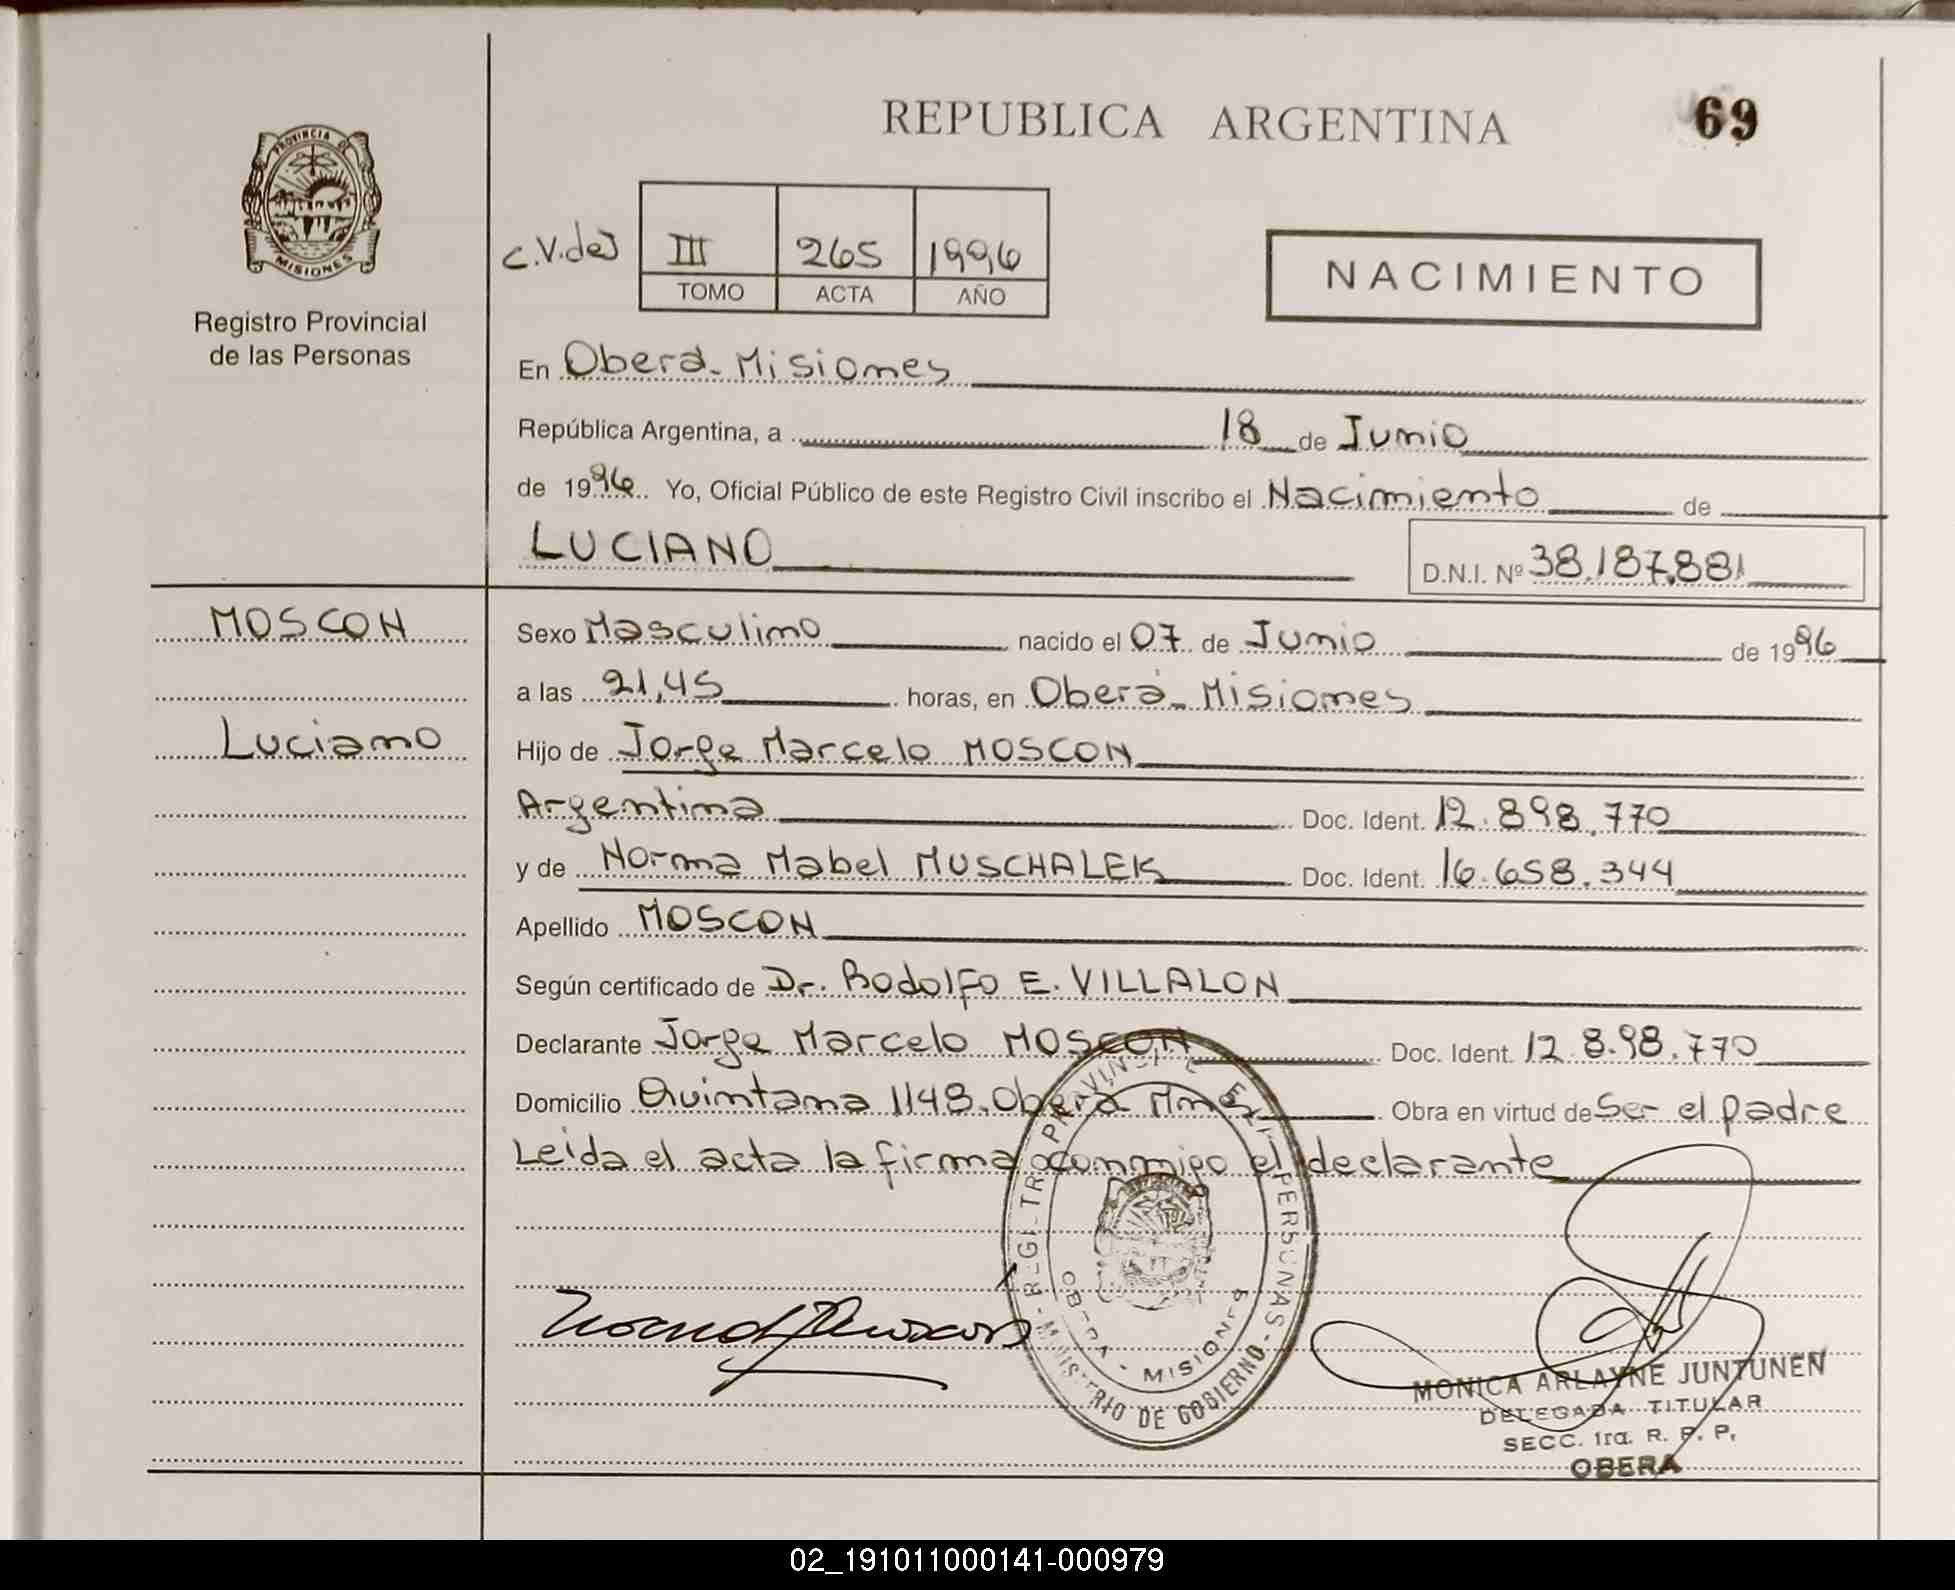 REPUBLICA ARGENTINA
69
PROVINCIA DE
MISIONES
Registro Provincial
de las Personas
c.V.deJ
III 265 1996
TOMO ACTA AÑO
NACIMIENTO
En Oberá-Misiones
República Argentina, a 18 de Junio
de 1996 Yo, Oficial Público de este Registro Civil inscribo el Nacimiento de
LUCIANO
D.N.I. Nº 38.187.881
MOSCON
Luciano
Sexo Masculino nacido el 07 de Junio de 1996
a las 21,45 horas, en Oberá-Misiones
Hijo de Jorge Marcelo MOSCON
Argentina Doc. Ident. 12.898.770
y de Norma Mabel MUSCHALEK Doc. Ident. 16.658.344
Apellido MOSCON
Según certificado de Dr. Rodolfo E. VILLALON
Declarante Jorge Marcelo MOSCON Doc. Ident. 12.898.770
Domicilio Quintana 1148. Oberá Mnes Obra en virtud de Ser el padre
Leida el acta la firma conmigo el declarante
OBERA - MISIONES
MINISTERIO DE GOBIERNO
MONICA ARLAYNE JUNTUNEN
DELEGADA TITULAR
SECC. 1ra. R. P. P.
OBERA
02_191011000141-000979